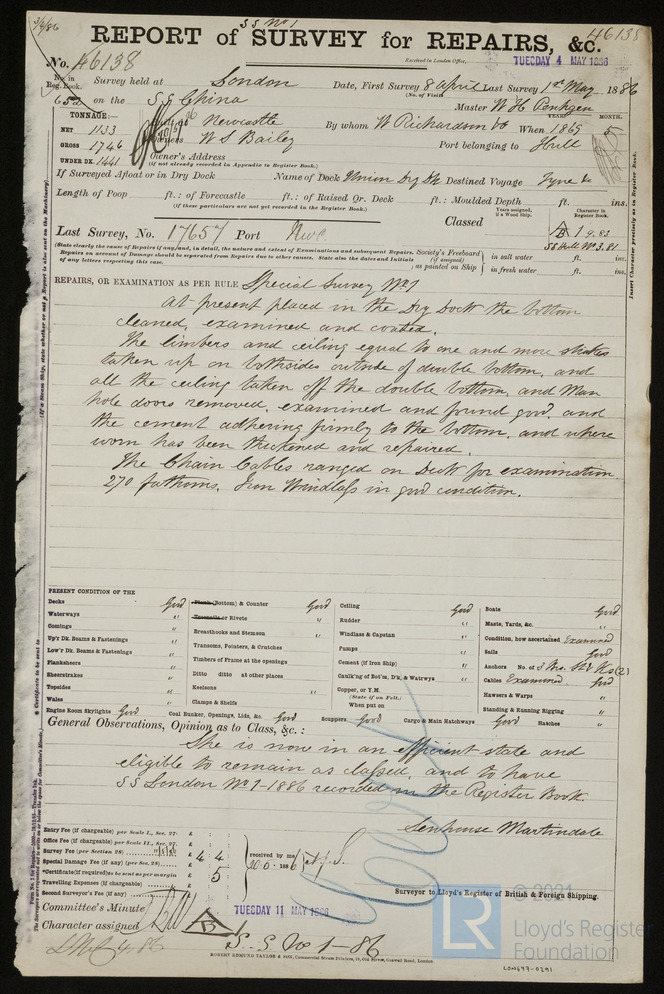 3/4/86
S S No 1
46138
REPORT of SURVEY for REPAIRS, &c.
Received in London Office,
TUESDAY 4 MAY 1886
No. 46138
No. in Reg. Book.
Survey held at London
Date, First Survey 8 April Last Survey 1st May 1886
(No. of Visits
on the S.S. China
Master
TONNAGE:—
NET 1133
Newcastle
By whom W Richardson & Co When 1865
YEAR
MONTH.
5
GROSS 1746
Owners W S Bailey
Port belonging to Hull
UNDER DK. 1441
Owner's Address
(if not already recorded in Appendix to Register Book.)
If Surveyed Afloat or in Dry Dock
Name of Dock Union Dry Dk Destined Voyage Tyne
Length of Poop ft.: of Forecastle ft.: of Raised Qr. Deck ft.: Moulded Depth ft. ins.
(if these particulars are not yet recorded in the Register Book.)
Years assigned, if a Wood Ship.
Character in Register Book.
Classed
Last Survey, No. 17657 Port Nwc
SS Hull No 3.81
(State clearly the cause of Repairs if any, and, in detail, the nature and extent of Examinations and subsequent Repairs. Repairs on account of Damage should be separated from Repairs due to other causes. State also the dates and Initials of any letters respecting this case.
Society's Freeboard (if assigned) as painted on Ship
in salt water ft. ins.
in fresh water ft. ins.
REPAIRS, OR EXAMINATION AS PER RULE Special Survey No 1
At present placed in the Dry Dock the bottom
cleaned, examined and coated.
The limbers and ceiling equal to one and more strakes
taken up on both sides outside of double bottom, and
all the ceiling taken off the double bottom, and Man
hole doors removed, examined and found good, and
the cement adhering firmly to the bottom, and where
worn has been thickened and repaired.
The Chain Cables ranged on Deck for examination
270 fathoms. Iron Windlass in good condition.
PRESENT CONDITION OF THE
Decks Good
Waterways "
Comings "
Up'r Dk. Beams & Fastenings "
Low'r Dk. Beams & Fastenings "
Planksheers "
Sheerstrakes "
Topsides "
Wales "
Engine Room Skylights Good
Plank (Bottom) & Counter Good
Treenails or Rivets "
Breasthooks and Stemson "
Transoms, Pointers, & Crutches
Timbers of Frame at the openings
Ditto ditto at other places
Keelsons "
Clamps & Shelfs
Coal Bunker, Openings, Lids, &c. Good
Ceiling Good
Rudder "
Windlass & Capstan "
Pumps "
Cement (if Iron Ship) "
Caulk'ng of Bot'm, D'k, & Watrwys "
Copper, or Y.M.
(State if on Felt.)
When put on
Scuppers Good
Cargo & Main Hatchways Good
Boats Good
Masts, Yards, &c. "
Condition, how ascertained Examined
Sails Good
Anchors No. of
Cables Examined Good
Hawsers & Warps "
Standing & Running Rigging "
Hatches "
General Observations, Opinion as to Class, &c.:
She is now in an efficient state and
eligible to remain as classed, and to have
SS London No 1-1886 recorded in the Register Book.
Senhouse Martindale
Surveyor to Lloyd's Register of British & Foreign Shipping.
Entry Fee (if chargeable) per Scale I., Sec. 27. £
Office Fee (if chargeable) per Scale II., Sec. 27. £
Survey Fee (per Section 28) £ 4 4
Special Damage Fee (if any) (per Sec. 28) £
*Certificate (if required) to be sent as per margin 5
Travelling Expenses (if chargeable)
Second Surveyor's Fee (if any) £
received by me
Committee's Minute
TUESDAY 11 MAY 1886
Character assigned
S.S No 1-86
ROBERT EDMUND TAYLER & SON, Commercial Steam Printers, 19, Old Street, Goswell Road, London.
LON677-0291
© 2021
LR
Lloyd's Register
Foundation
Insert Character precisely as in Register Book.